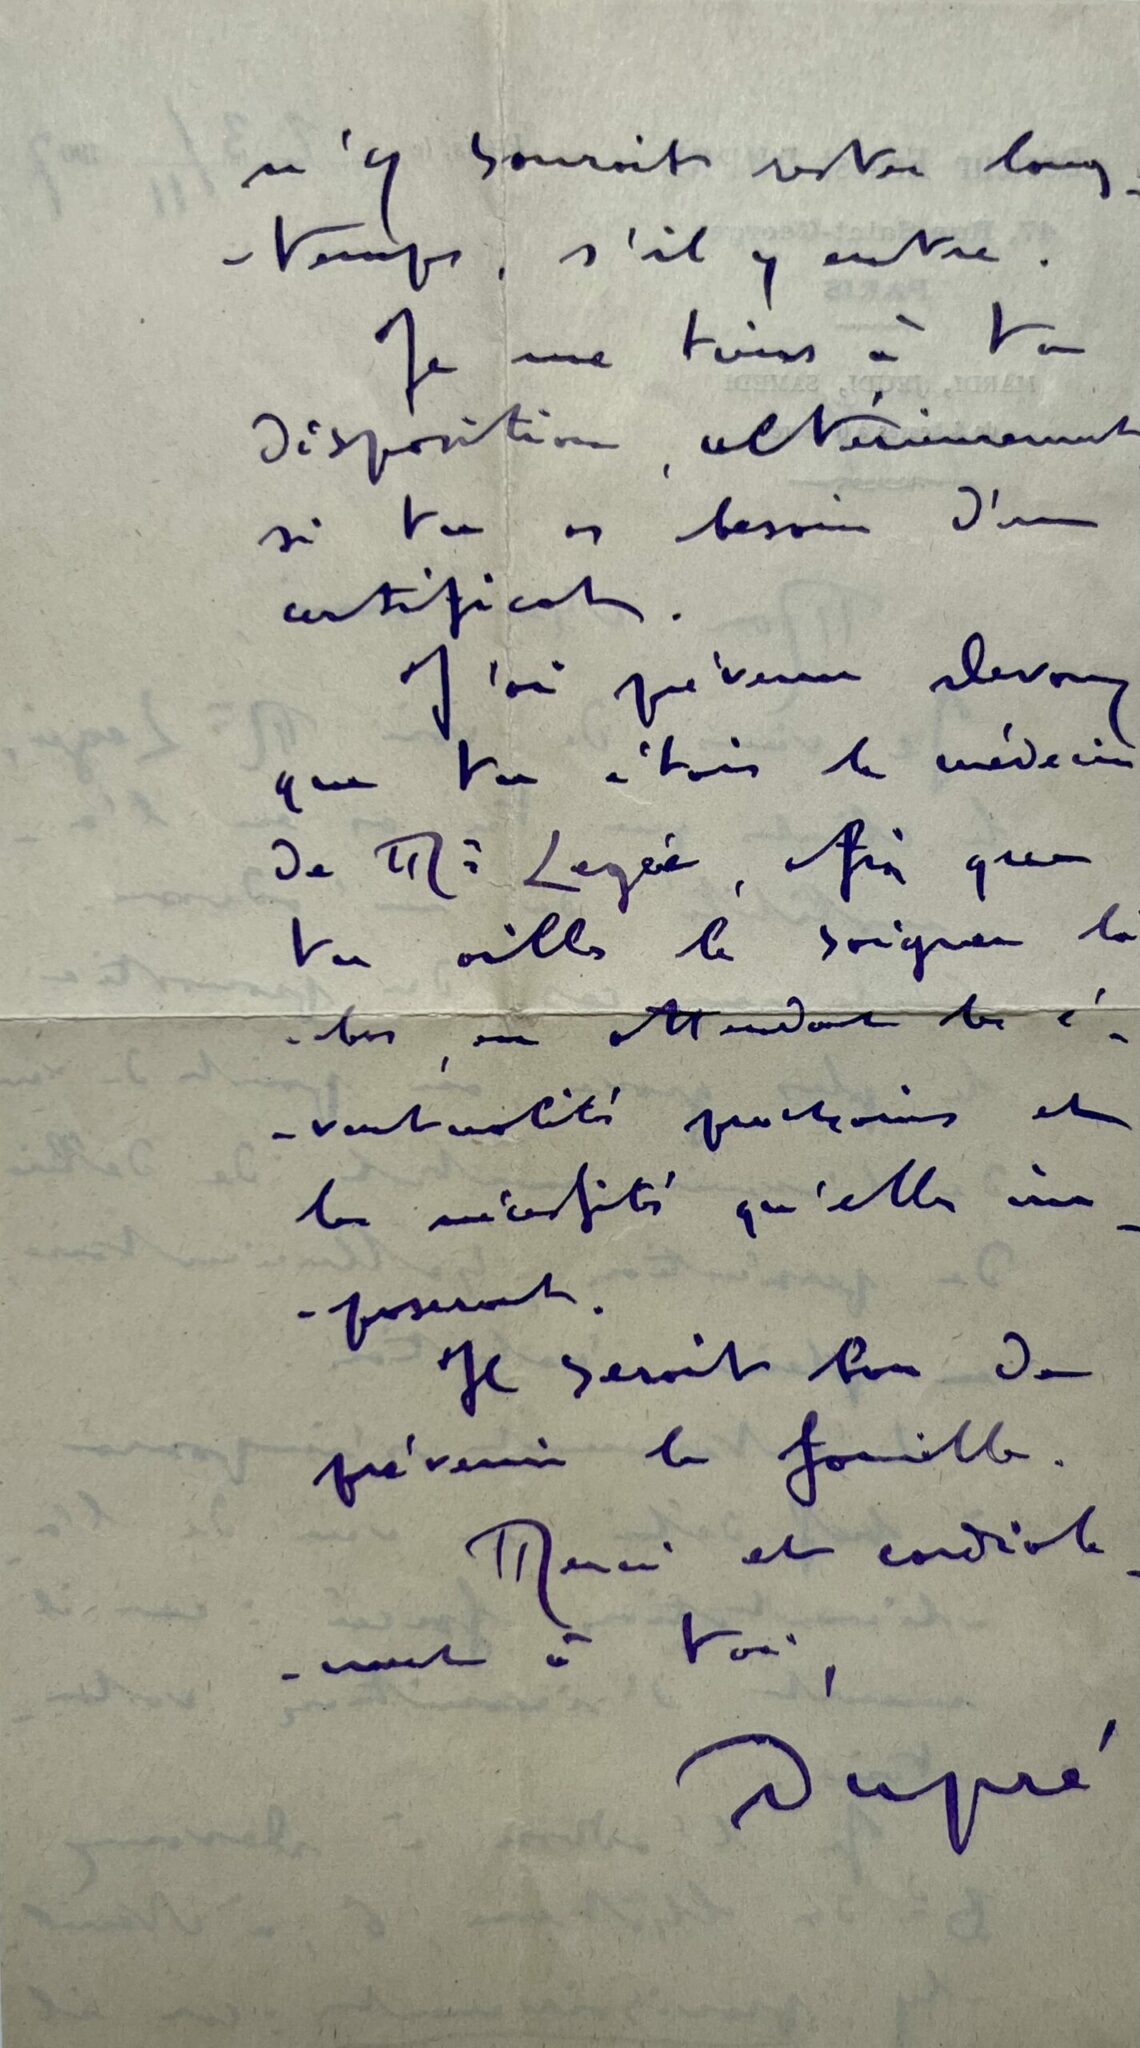 n'y saurait rester long-
-temps, s'il y entre.
Je me tiens à ta
disposition, ultérieurement
si tu as besoin d'un
certificat.
J'ai prévenu Devouy
que tu étais le médecin
de Mr Legée, afin que
tu ailles le soigner là
-bas, en attendant les é-
-ventualités prochaines et
les nécessités qu'elles im-
-poseront.
Il serait bon de
prévenir la famille.
Merci et cordiale-
-ment à toi,
Dupré